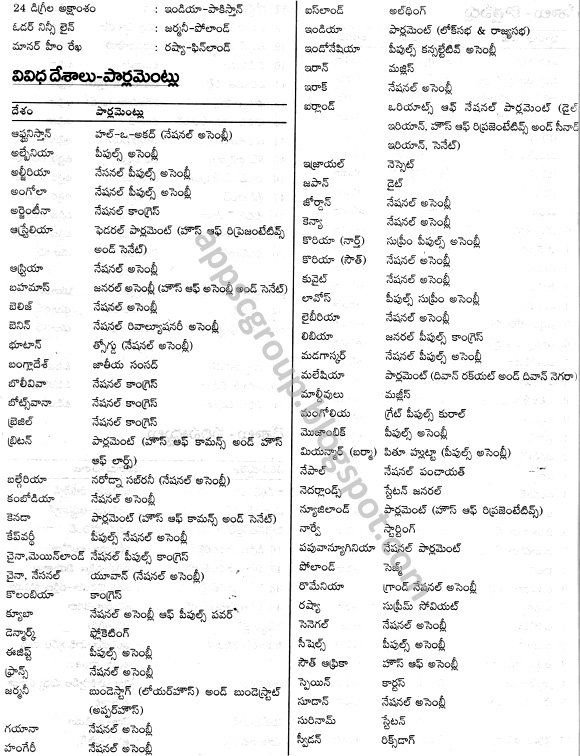 24 డిగ్రీల అక్షాంశం : ఇండియా-పాకిస్తాన్
ఓడర్ నిస్సీ లైన్ : జర్మనీ-పోలాండ్
మానర్ హీం రేఖ : రష్యా-ఫిన్‌లాండ్
వివిధ దేశాలు-పార్లమెంట్లు
దేశం పార్లమెంట్లు
ఆఫ్ఘనిస్తాన్ హల్-ఒ-అకద్ (నేషనల్ అసెంబ్లీ)
అల్బేనియా పీపుల్స్ అసెంబ్లీ
అల్జీరియా నేసనల్ పీపుల్స్ అసెంబ్లీ
అంగోలా నేషనల్ పీపుల్స్ అసెంబ్లీ
అర్జెంటీనా నేషనల్ కాంగ్రెస్
ఆస్ట్రేలియా ఫెడరల్ పార్లమెంట్ (హౌస్ ఆఫ్ రిప్రెజెంటేటివ్స్
అండ్ సెనేట్)
ఆస్ట్రియా నేషనల్ అసెంబ్లీ
బహమాస్ జనరల్ అసెంబ్లీ (హౌస్ ఆఫ్ అసెంబ్లీ అండ్ సెనేట్)
బెలిజ్ నేషనల్ అసెంబ్లీ
బెనిన్ నేషనల్ రివాల్యూషనరీ అసెంబ్లీ
భూటాన్ త్సోగ్డు (నేషనల్ అసెంబ్లీ)
బంగ్లాదేశ్ జాతీయ సంసద్
బొలీవివా నేషనల్ కాంగ్రెస్
బోట్స్‌వానా నేషనల్ కాంగ్రెస్
బ్రెజిల్ నేషనల్ కాంగ్రెస్
బ్రిటన్ పార్లమెంట్ (హౌస్ ఆఫ్ కామన్స్ అండ్ హౌస్
ఆఫ్ లార్డ్స్)
బల్గేరియా నరోద్నా సబ్‌రనీ (నేషనల్ అసెంబ్లీ)
కంబోడియా నేషనల్ అసెంబ్లీ
కెనడా పార్లమెంట్ (హౌస్ ఆఫ్ కామన్స్ అండ్ సెనేట్)
కేప్‌వర్ధీ పీపుల్స్ నేషనల్ అసెంబ్లీ
చైనా,మెయిన్‌లాండ్ నేషనల్ పీపుల్స్ కాంగ్రెస్
చైనా, నేసనల్ యూవాన్ (నేషనల్ అసెంబ్లీ)
కొలంబియా కాంగ్రెస్
క్యూబా నేషనల్ అసెంబ్లీ ఆఫ్ పీపుల్స్ పవర్
డెన్మార్క్ ఫ్లోకెటింగ్
ఈజిప్ట్ పీపుల్స్ అసెంబ్లీ
ఫ్రాన్స్ నేషనల్ అసెంబ్లీ
జర్మనీ బుండెస్టాగ్ (లోయర్‌హౌస్) అండ్ బుండెస్ట్రాట్
(అప్పర్‌హౌస్)
గయానా నేషనల్ అసెంబ్లీ
హంగేరీ నేషనల్ అసెంబ్లీ
ఐస్‌లాండ్ అల్‌థింగ్
ఇండియా పార్లమెంట్ (లోక్‌సభ & రాజ్యసభ)
ఇండోనేషియా పీపుల్స్ కన్సల్టేటివ్ అసెంబ్లీ
ఇరాన్ మజ్లిస్
ఇరాక్ నేషనల్ అసెంబ్లీ
ఐర్లాండ్ ఒరియాట్స్ ఆఫ్ నేషనల్ పార్లమెంట్ (డైల్
ఇరియాన్, హౌస్ ఆఫ్ రిప్రజెంటేటివ్స్ అండ్ సీనాడ్
ఇరియాన్, సెనేట్)
ఇజ్రాయల్ నెస్సెట్
జపాన్ డైట్
జోర్డాన్ నేషనల్ అసెంబ్లీ
కెన్యా నేషనల్ అసెంబ్లీ
కొరియా (నార్త్) సుప్రీం పీపుల్స్ అసెంబ్లీ
కొరియా (సౌత్) నేషనల్ అసెంబ్లీ
కువైట్ నేషనల్ అసెంబ్లీ
లావోస్ పీపుల్స్ సుప్రీం అసెంబ్లీ
లైబీరియా నేషనల్ అసెంబ్లీ
లిబియా జనరల్ పీపుల్స్ కాంగ్రెస్
మడగాస్కర్ నేషనల్ పీపుల్స్ అసెంబ్లీ
మలేషియా పార్లమెంట్ (దివాన్ రక్‌యట్ అండ్ దివాన్ నెగరా)
మాల్దీవులు మజ్లీస్
మంగోలియ గ్రేట్ పీపుల్స్ కురాల్
మొజాంబిక్ పీపుల్స్ అసెంబ్లీ
మియన్మార్ (బర్మా) పితూ హ్లుట్టా (పీపుల్స్ అసెంబ్లీ)
నేపాల్ నేషనల్ పంచాయత్
నెదర్లాండ్స్ స్టేటన్ జనరల్
న్యూజిలాండ్ పార్లమెంట్ (హౌస్ ఆఫ్ రిప్రజెంటేటివ్స్)
నార్వే స్టార్టింగ్
పపువాన్యూగినియా నేషనల్ పార్లమెంట్
పోలాండ్ సెజ్మ్
రొమేనియా గ్రాండ్ నేషనల్ అసెంబ్లీ
రష్యా సుప్రీమ్ సోవియట్
సెనెగల్ నేషనల్ అసెంబ్లీ
సీషెల్స్ పీపుల్స్ అసెంబ్లీ
సౌత్ ఆఫ్రికా హౌస్ ఆఫ్ అసెంబ్లీ
స్పెయిన్ కార్టస్
సూడాన్ నేషనల్ అసెంబ్లీ
సురినామ్ స్టేటన్
స్వీడన్ రిక్స్‌డాగ్
appscgroup.blogspot.com